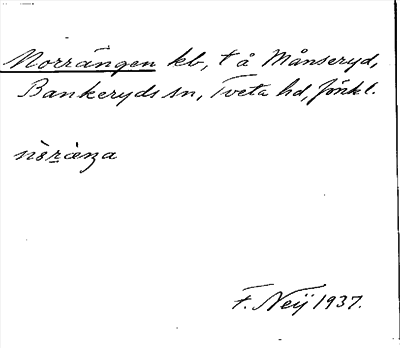 Norrängen kb, t å Månseryd,
Bankeryds sn, Tveta hd, Jönkl.
nòr̲æ̀ŋa
F. Neij 1937.